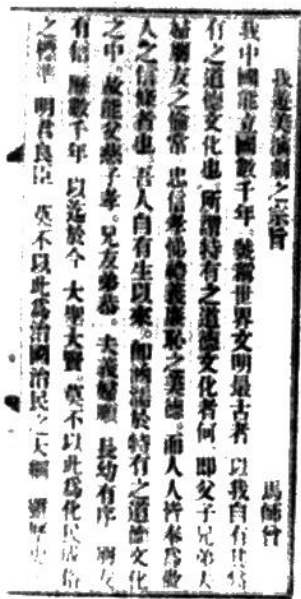 我遊美演劇之宗旨
馬師曾
我中國能立國數千年。號稱世界文明最古者。以我自有其特
有之道德文化也。所謂特有之道德文化者何。即父子兄弟夫
婦朋友之倫常。忠信孝悌禮義廉恥之美德。而人人皆奉爲做
人之信條者也。吾人自有生以來。即涵濡於特有之道德文化
之中。故能父慈子孝。兄友弟恭。夫義婦順。長幼有序。朋友
有信。歷數千年。以迄於今。大聖大賢。莫不以此爲化民成俗
之標準。明君良臣。莫不以此爲治國治民之大綱。